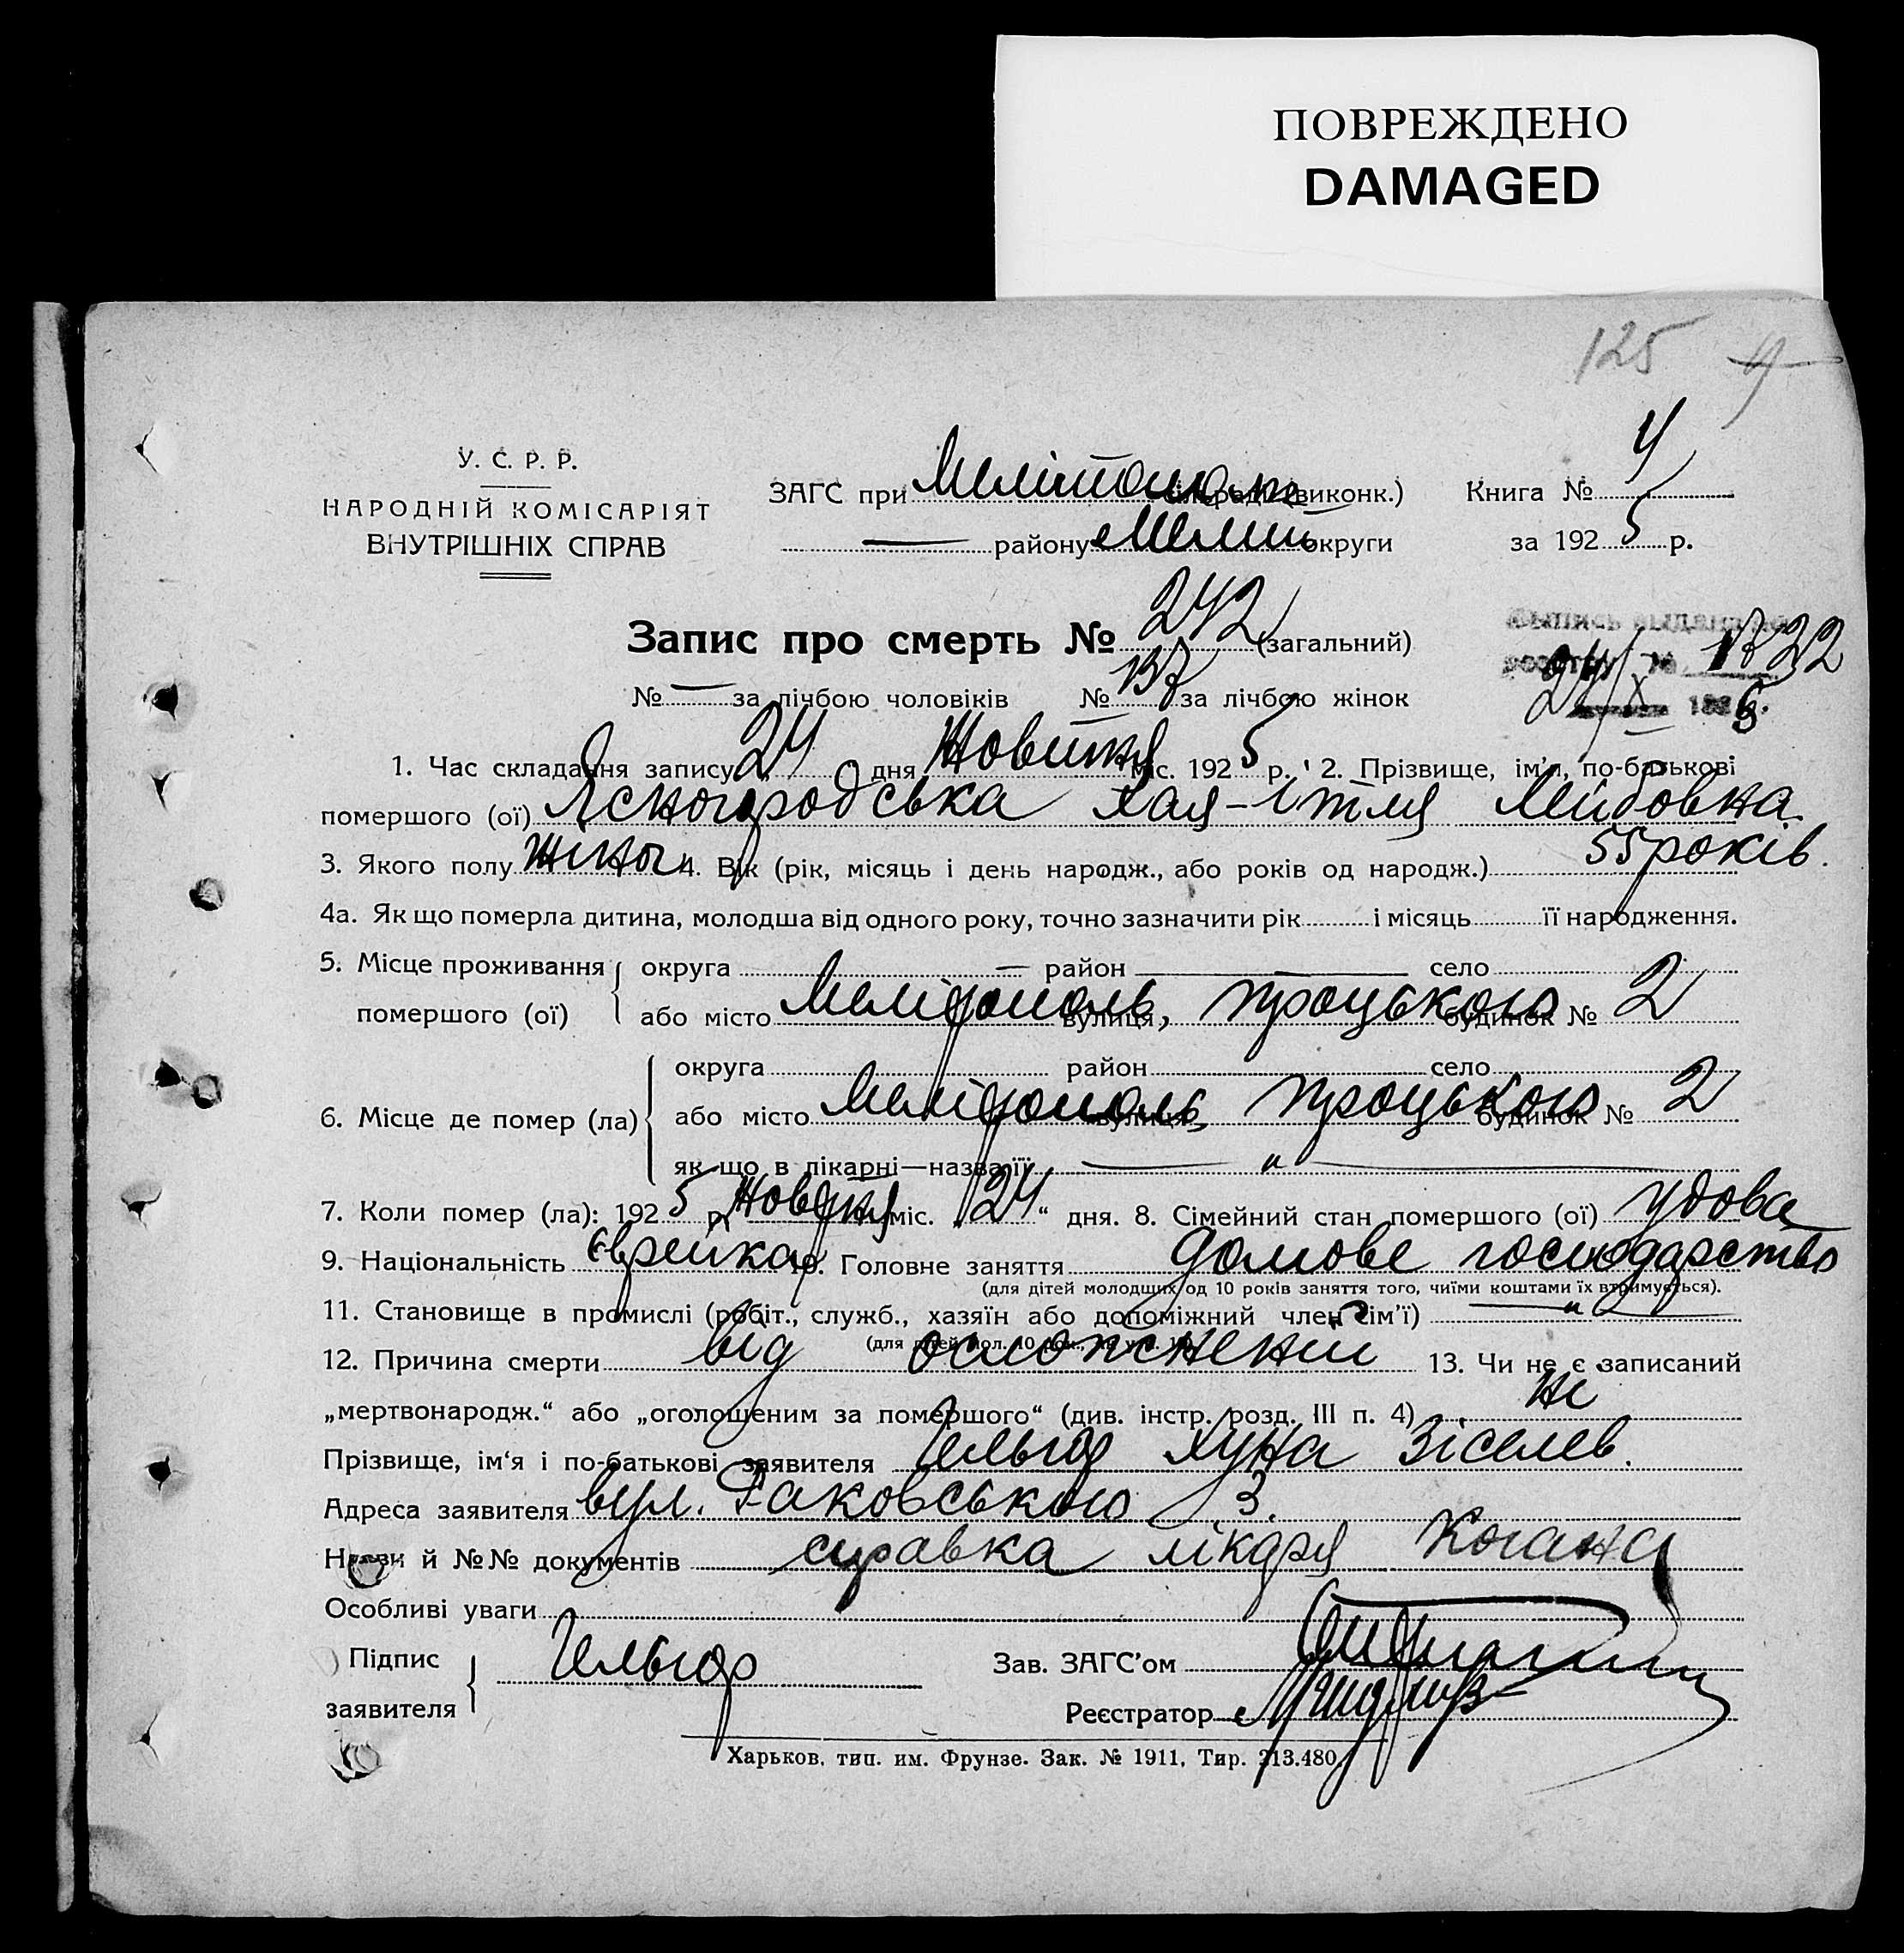 ПОВРЕЖДЕНО
DAMAGED
125
У. С. Р. Р.
НАРОДНІЙ КОМІСАРІЯТ
ВНУТРІШНІХ СПРАВ
ЗАГС при (виконк.) Книга № 4
— району Меліт округи за 1925 р.
Запис про смерть № 242 (загальний)
№ — за лічбою чоловіків № 137 за лічбою жінок
24/X
1. Час складання запису 24 дня Жовтня міс. 1925 р. 2. Прізвище, ім'я, по-батькові
помершого (ої) Ясногородська Хая-Ітля Лейбовна
3. Якого полу жіноч 4. Вік (рік, місяць і день народж., або років од народж.) 55 років.
4а. Як що померла дитина, молодша від одного року, точно зазначити рік і місяць її народження.
5. Місце проживання помершого (ої) округа — район — село
або місто Мелітополь, вулиця Троцького будинок № 2
6. Місце де помер (ла) округа район село
або місто Мелітополь, вулиця Троцького будинок № 2
як що в лікарні—назва її — " —
7. Коли помер (ла): 1925 р. Жовтня міс. „24“ дня. 8. Сімейний стан помершого (ої) удова
9. Національність Єврейка 10. Головне заняття домове господарство
(для дітей молодших од 10 років заняття того, чиїми коштами їх втримується).
11. Становище в промислі (робіт., служб., хазяїн або допоміжний член сім'ї) — " —
12. Причина смерти від 13. Чи не є записаний
„мертвонародж.“ або „оголошеним за помершого“ (див. інстр. розд. III п. 4) Ні
Прізвище, ім'я і по-батькові заявителя Гельгор Хуна Зіселев.
Адреса заявителя вул. Раковського 3.
Назви й №№ документів справка лікаря Когана
Особливі уваги
Підпис заявителя Гельгор Зав. ЗАГС'ом
Реєстратор
Харьков, тип. им. Фрунзе. Зак. № 1911, Тир. 313.480.